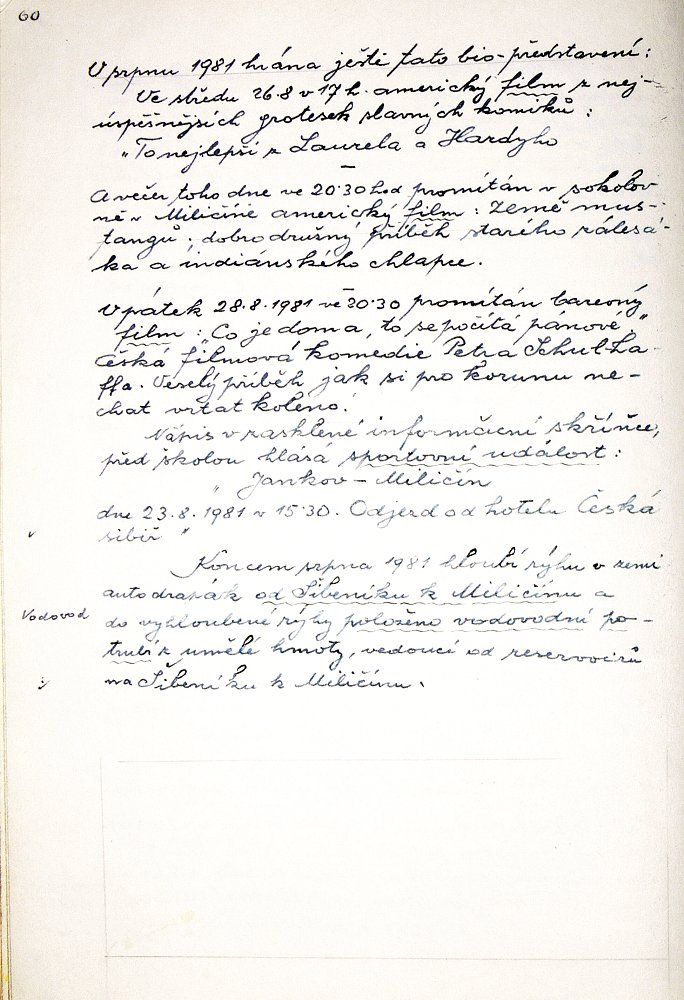 60
V srpnu 1981 hrána ještě tato bio-představení:
Ve středu 26.8 v 17 h. americký film z nej-
úspěšnějších grotesek slavných komiků:
"To nejlepší z Laurela a Hardyho
A večer toho dne ve 20.30 hod promítán v sokolov-
ně v Miličíně americký film: Země mus-
tangů: dobrodružný příběh starého zálesá-
ka a indiánského chlapce.
V pátek 28.8.1981 ve 20.30 promítán barevný
film: "Co je doma, to se počítá pánové,"
Česká filmová komedie Petra Schul-
ffa. Veselý příběh jak si pro korunu ne-
chat vrtat koleno.
Nápis v zasklené informační skříňce,
před školou hlásá sportovní událost:
"Jankov - Miličín
dne 23.8.1981 v 15.30. Odjezd od hotelu Česká
sibiř"
Koncem srpna 1981 hloubí rýhu v zemi
autodrapák od Šibeníku k Miličínu a
Vodovod
do vyhloubené rýhy položeno vodovodní po-
trubí z umělé hmoty, vedoucí od reservoirů
na Šibeníku k Miličínu.